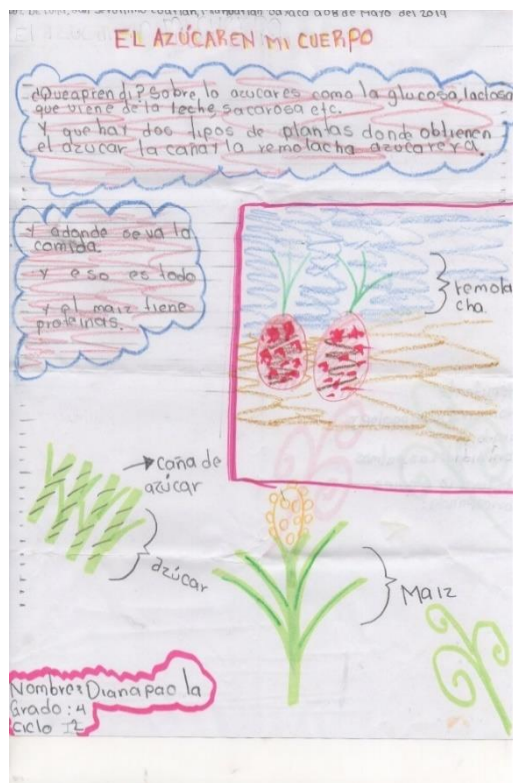 San Jerónimo
Oaxaca a 08 de Mayo del 2019
EL AZÚCAR EN MI CUERPO
¿Que aprendi? Sobre lo acucares como la glucosa, lactosa
que viene de la leche, sacarosa etc.
Y que hay dos tipos de plantas donde obtienen
el azucar la caña y la remolacha azucarera.
Y adonde se va la
comida.
Y eso es todo
Y el maiz tiene
proteinas.
remola
cha.
caña de
azúcar
azúcar
Maiz
Nombre: Diana paola
Grado: 4
Ciclo I2